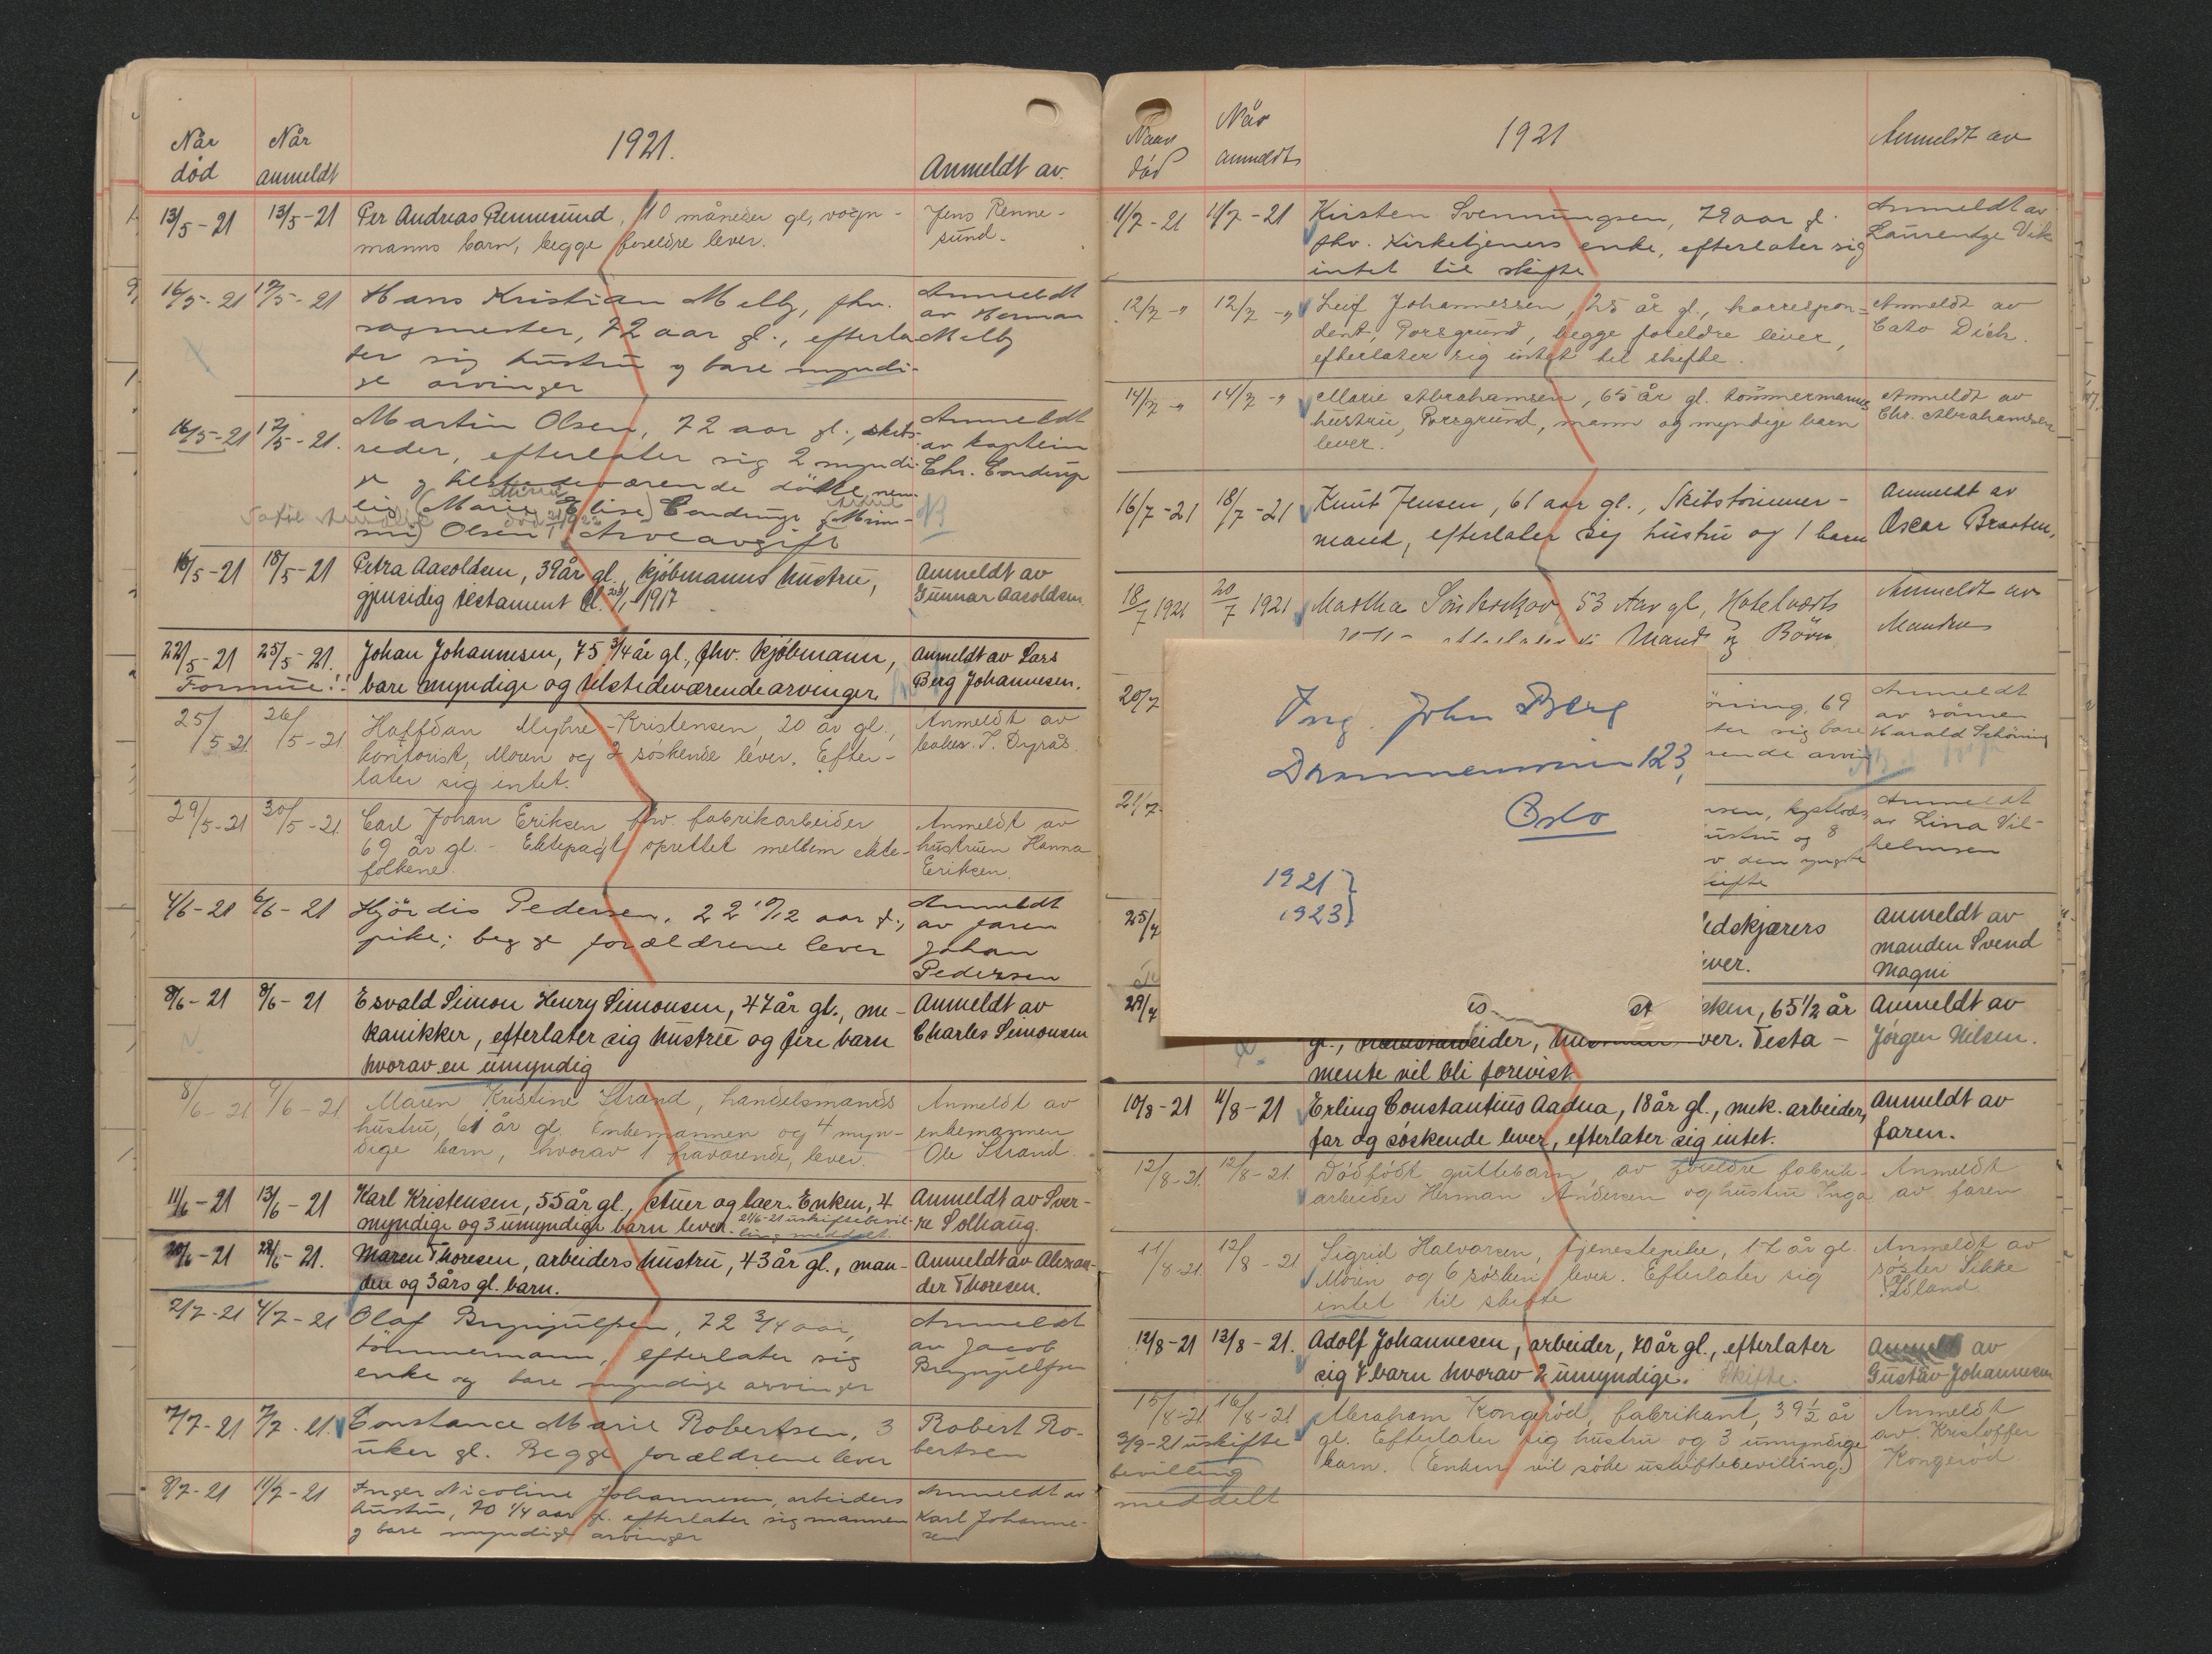 Når død
Når anmeldt
1921.
Anmeldt av.
13/5-21 13/5-21 Per Andreas Rennesund, 10 måneder gl, vogn- Jens Renne-
manns barn, begge foreldre lever. sund.
16/5-21 17/5-21 Hans Kristian Melby, fhv. Anmeldt
sagmester, 72 aar gl., efterla- av Herman
ter sig hustru og bare myndi- Melby
ge arvinger
16/5-21 17/5-21. Martin Olsen, 72 aar gl., skibs- Anmeldt
reder, efterlater sig 2 myndi- av kaptein
ge og tilstedeværende døtre, nem- Chr.
lig (Marie Elise)
Olsen Arveavgift
16/5-21 18/5-21 Petra Aasoldsen, 39 år gl., kjøbmanns hustru, Anmeldt av
gjensidig testament 1917 Gunnar Aasoldsen
22/5-21 25/5-21. Johan Johannesen, 75 3/4 år gl., fhv. kjøbmann, Anmeldt av Lars
Formue!! bare myndige og tilstedeværende arvinger. Berg Johannesen.
25/5-21 26/5-21 Halfdan Myhre-Kristensen, 20 år gl., Anmeldt av
kontorist, Moren og 2 søskende lever. Efter- T. Dyrås.
later sig intet.
29/5-21 30/5-21 Carl Johan Eriksen fhv. fabrikarbeider Anmeldt av
69 år gl. - Ektepagt oprettet mellem ekte- hustruen Hanna
folkene. Eriksen.
4/6-21 6/6-21 Hjördis Pedersen, 22 10/12 aar gl., Anmeldt
pike; begge forældrene lever av faren
Johan
Pedersen
8/6-21 8/6-21 Esvald Simon Henry Simonsen, 47 år gl., me- Anmeldt av
kanikker, efterlater sig hustru og fire barn Charles Simonsen
hvorav en umyndig
8/6-21 9/6-21 Maren Kristine Strand, handelsmands Anmeldt av
hustru, 61 år gl. Enkemannen og 4 myn- enkemannen
dige barn, hvorav 1 fraværende, lever. Ole Strand.
11/6-21 13/6-21 Karl Kristensen, 55 år gl., stuer og laer. Enken, 4 Anmeldt av Sver-
myndige og 3 umyndige barn lever. 21/6-21 uskiftebevil- re Solhaug.
ling meddelt.
20/6-21 28/6-21. Maren Thoresen, arbeiders hustru, 43 år gl., man- Anmeldt av Alexan-
den og 3 års gl. barn. der Thoresen.
2/7-21 4/7-21 Olaf Brynjulfsen, 72 3/4 aar, Anmeldt
tömmermann, efterlater sig av Jacob
enke og bare myndige arvinger Brynjulfsen
7/7-21 7/7-21. Constance Marie Robertsen, 3 Robert Ro-
uker gl. Begge forældrene lever bertsen
8/7-21 11/7-21 Inger Nicoline Johannesen, arbeiders Anmeldt av
hustru, 70 1/4 aar gl. efterlater sig mannen Karl Johanne-
og bare myndige arvinger sen
Naar død
Når anmeldt
1921
Anmeldt av
11/7-21 11/7-21 Kirsten Svenningsen, 79 aar gl. Anmeldt av
fhv. Kirketjeners enke, efterlater sig Laurentze Vik
intet til skifte
12/7-" 12/7-" Leif Johannessen, 25 år gl., korrespon- Anmeldt av
dent, Porsgrund, begge foreldre lever, Cato Dich.
efterlater sig intet til skifte.
14/7-" 14/7-" Marie Abrahamsen, 65 år gl. tømmermanns Anmeldt av
hustru, Porsgrund, mann og myndige barn Chr. Abrahamsen
lever.
16/7-21 18/7-21 Knut Jensen, 61 aar gl., Skibstømmer- Anmeldt av
mand, efterlater sig hustru og 1 barn Oscar Braaten,
18/7 1921 20/7 1921 Martha Sønderskov, 53 Aar gl, Hotelværts Anmeldt av
Mand og Börn Manden
20/7
69 Anmeldt
ter sig bare av sönnen
rende arvin Harald Schöning
21/7
Anmeldt
ustru og 8 av Lina Vil-
v den yngste helmsen
kifte
25/7
edskjærers Anmeldt av
ever. manden Svend
Magni
29/7
sken, 65 1/2 år Anmeldt av
gl., ver. Testa- Jörgen Nilsen.
mente vil bli forevist.
Ing. John Berg
Drammensveien 123,
Oslo
1921 }
1923 }
10/8-21 11/8-21 Erling Constantius Aadna, 18 år gl., mek. arbeider, Anmeldt av
far og søskende lever, efterlater sig intet. faren.
12/8-21. 12/8-21. Dødfødt guttebarn av foreldre fabrik- Anmeldt
arbeider Herman Andersen og hustru Inga av faren
11/8-21. 12/8-21 Sigrid Halvorsen, tjenestepike, 17 år gl. Anmeldt av
Moren og 6 søsken lever. Efterlater sig søster Sikke
intet til skifte
12/8-21 13/8-21. Adolf Johannesen, arbeider, 70 år gl., efterlater Anmeldt av
sig 7 barn hvorav 2 umyndige. Skifte. Gustav Johannesen
15/8-21 16/8-21 Abraham Kongerød, fabrikant, 39 1/2 år Anmeldt
3/9-21 uskifte gl. Efterlater sig hustru og 3 umyndige av Kristoffer
bevilling barn. (Enken vil søke uskiftebevilling.) Kongerød
meddelt